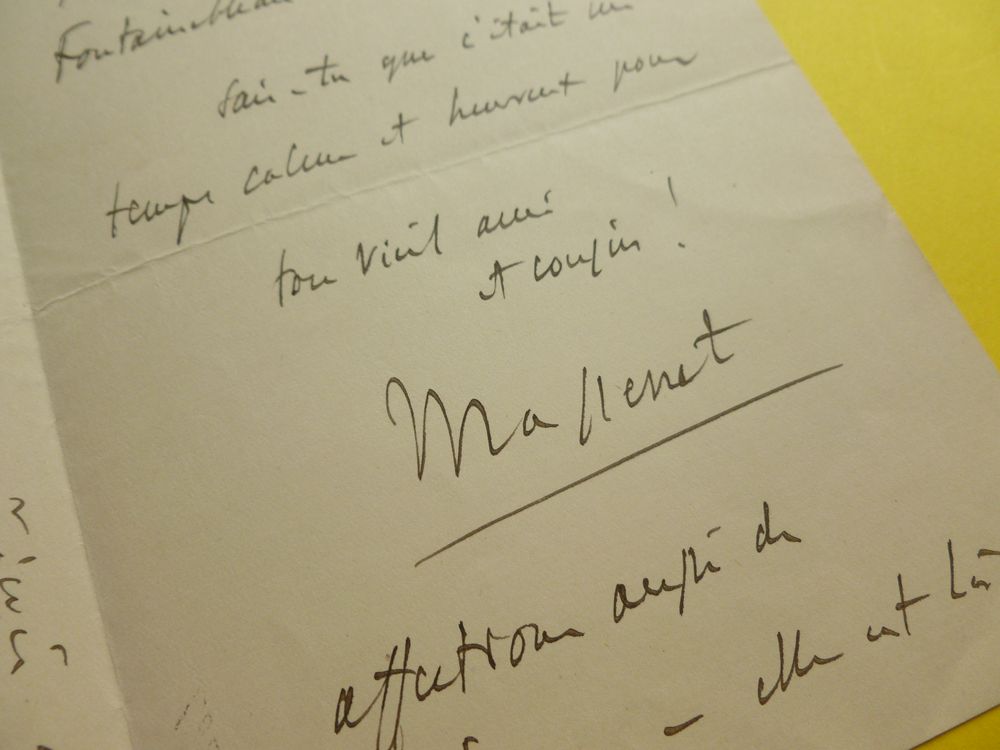 Fontainebleau
sais-tu que c'était un
temps calme et heureux pour
ton vieil ami
et cousin !
Massenet
affections aussi de
– elle est là